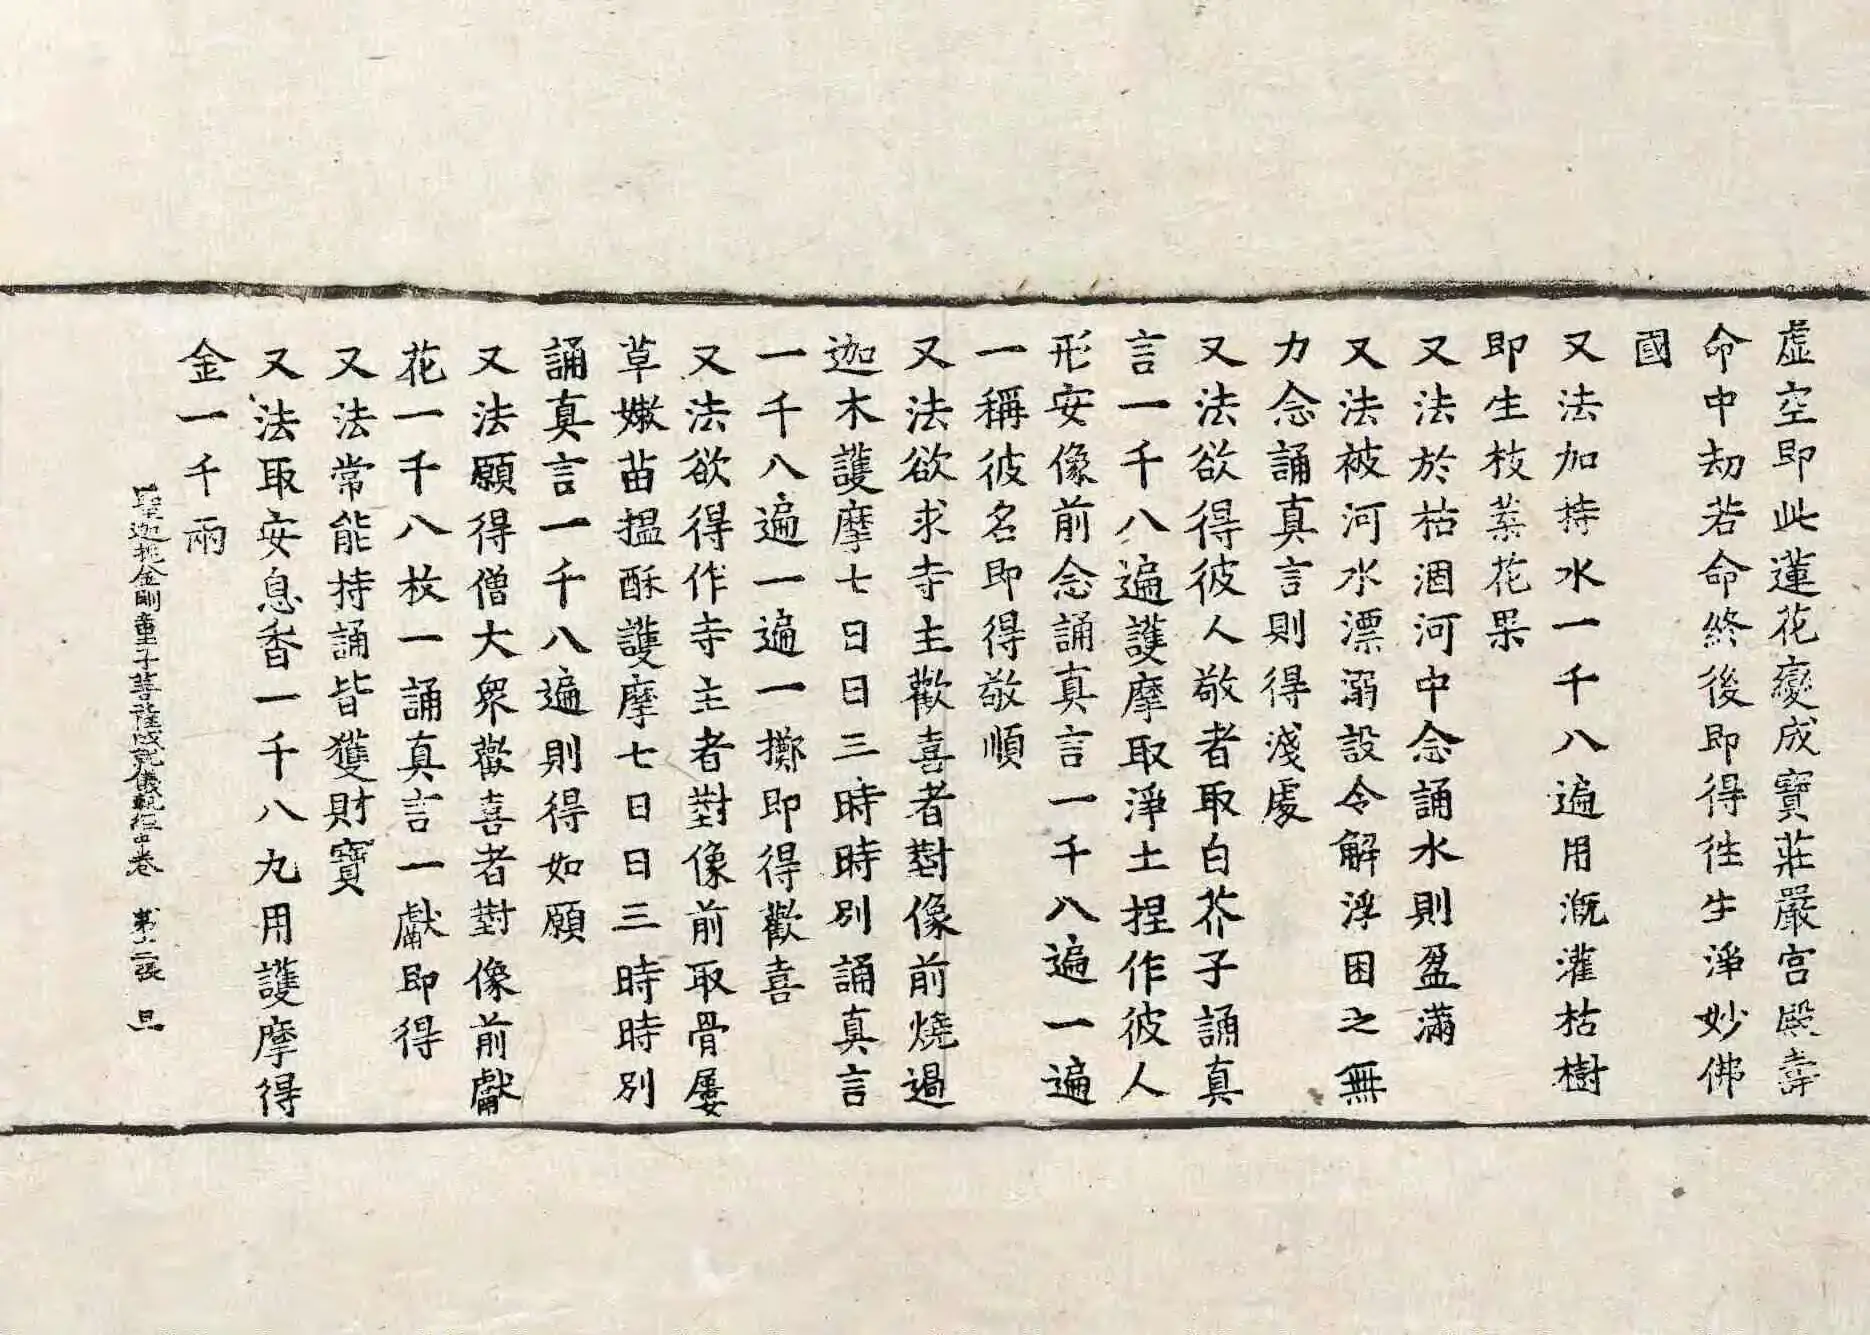 虛空即此蓮花變成寶莊嚴宮殿壽
命中劫若命終後即得往生淨妙佛
國
又法加持水一千八遍用溉灌枯樹
即生枝葉花果
又法於枯涸河中念誦水則盈滿
又法被河水漂溺設令解浮困之無
力念誦真言則得淺處
又法欲得彼人敬者取白芥子誦真
言一千八遍護摩取淨土捏作彼人
形安像前念誦真言一千八遍一遍
一稱彼名即得敬順
又法欲求寺主歡喜者對像前燒過
迦木護摩七日日三時時別誦真言
一千八遍一遍一擲即得歡喜
又法欲得作寺主者對像前取骨屢
草嫩苗揾酥護摩七日日三時時別
誦真言一千八遍則得如願
又法願得僧大眾歡喜者對像前獻
花一千八枚一誦真言一獻即得
又法常能持誦皆獲財寶
又法取安息香一千八丸用護摩得
金一千兩
聖迦抳金剛童子菩薩成就儀軌經中卷 第十二張